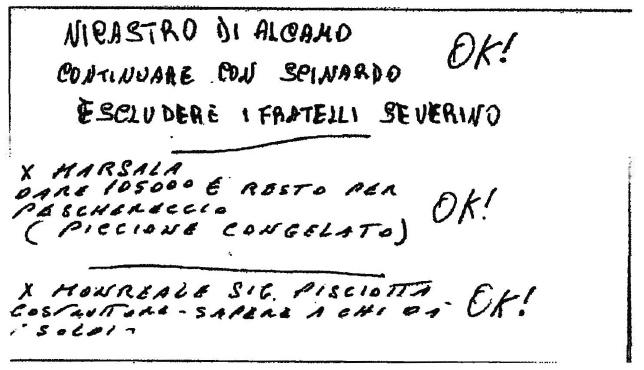 NICASTRO DI ALCAMO OK!
CONTINUARE CON SPINARDO
ESCLUDERE I FRATELLI SEVERINO
X MARSALA
DARE 105000 E RESTO PER
PESCHERECCIO OK!
( PICCIONE CONGELATO)
X MONREALE SIG. PISCIOTTA- OK!
COSTRUTTORE - SAPERE A CHI DA
I SOLDI -